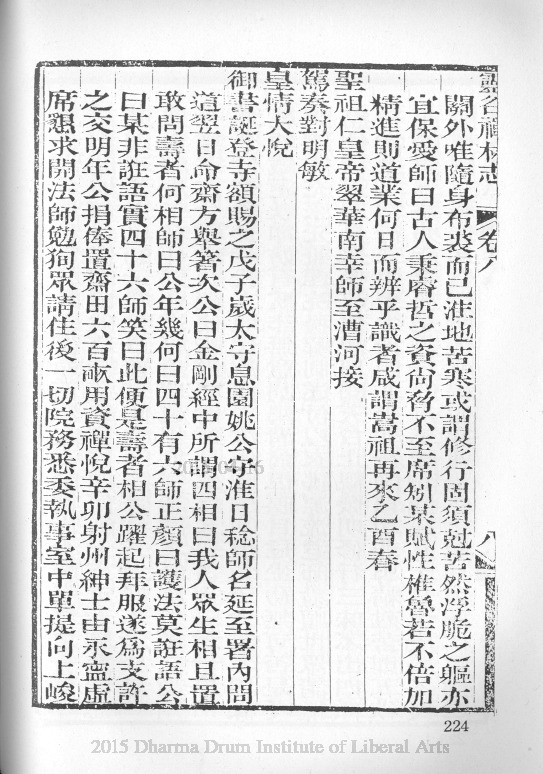 雲谷禪林志 卷八 八
關外唯隨身布裘而已淮地苦寒或謂修行固須尅苦然浮脆之軀亦
宜保愛師曰古人秉睿哲之資尚脅不至席矧某賦性椎魯若不倍加
精進則道業何日而辨乎識者咸謂嵩祖再來乙酉春
聖祖仁皇帝翠華南幸師至漕河接
駕奏對明敏
皇情大悅
御書誕登寺額賜之戊子歲太守息園姚公守淮日稔師名延至署內問
道翌日命齋方舉箸次公曰金剛經中所謂四相曰我人眾生相且置
敢問壽者何相師曰公年幾何曰四十有六師正顏曰護法莫誑語公
曰某非誑語實四十六師笑曰此便是壽者相公躍起拜服遂為支許
之交明年公捐俸置齋田六百畝用資禪悅辛卯射州紳士由永寍虛
席懇求開法師勉狥眾請住後一切院務悉委執事室中單提向上峻
224
2015 Dharma Drum Institute of Liberal Arts